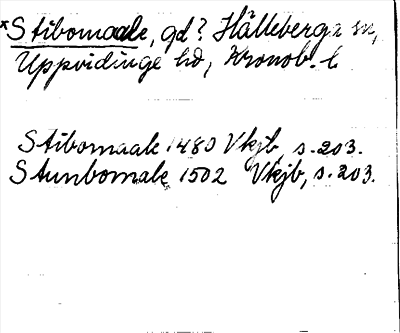 ×Stibomaale, gd? Hälleberga sn,
Uppvidinge hd, Kronob. l
Stibomaale 1480 Vkjb, s. 203.
Stunbomale 1502 Vkjb, s. 203.